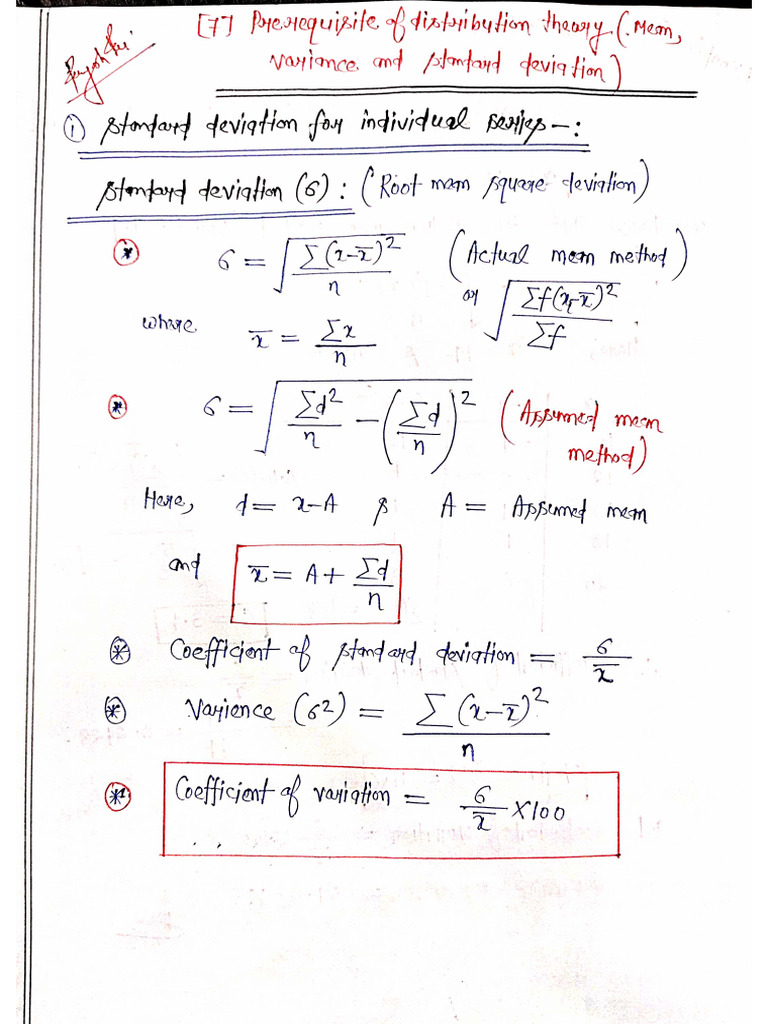 [7] Prerequisite of distribution theory (Mean,
Variance and standard deviation)
① Standard deviation for individual series -:
Standard deviation (σ) : (Root mean square deviation)
* σ = √(Σ(x-x̄)²/n) (Actual mean method)
or √(Σf(xᵢ-x̄)²/Σf).
where x̄ = Σx/n
* σ = √(Σd²/n - (Σd/n)²) (Assumed mean
method)
Here, d = x-A & A = Assumed mean
and x̄ = A + Σd/n
* Coefficient of standard deviation = σ/x̄
* Varience (σ²) = Σ(x-x̄)²/n
* Coefficient of variation = σ/x̄ ×100